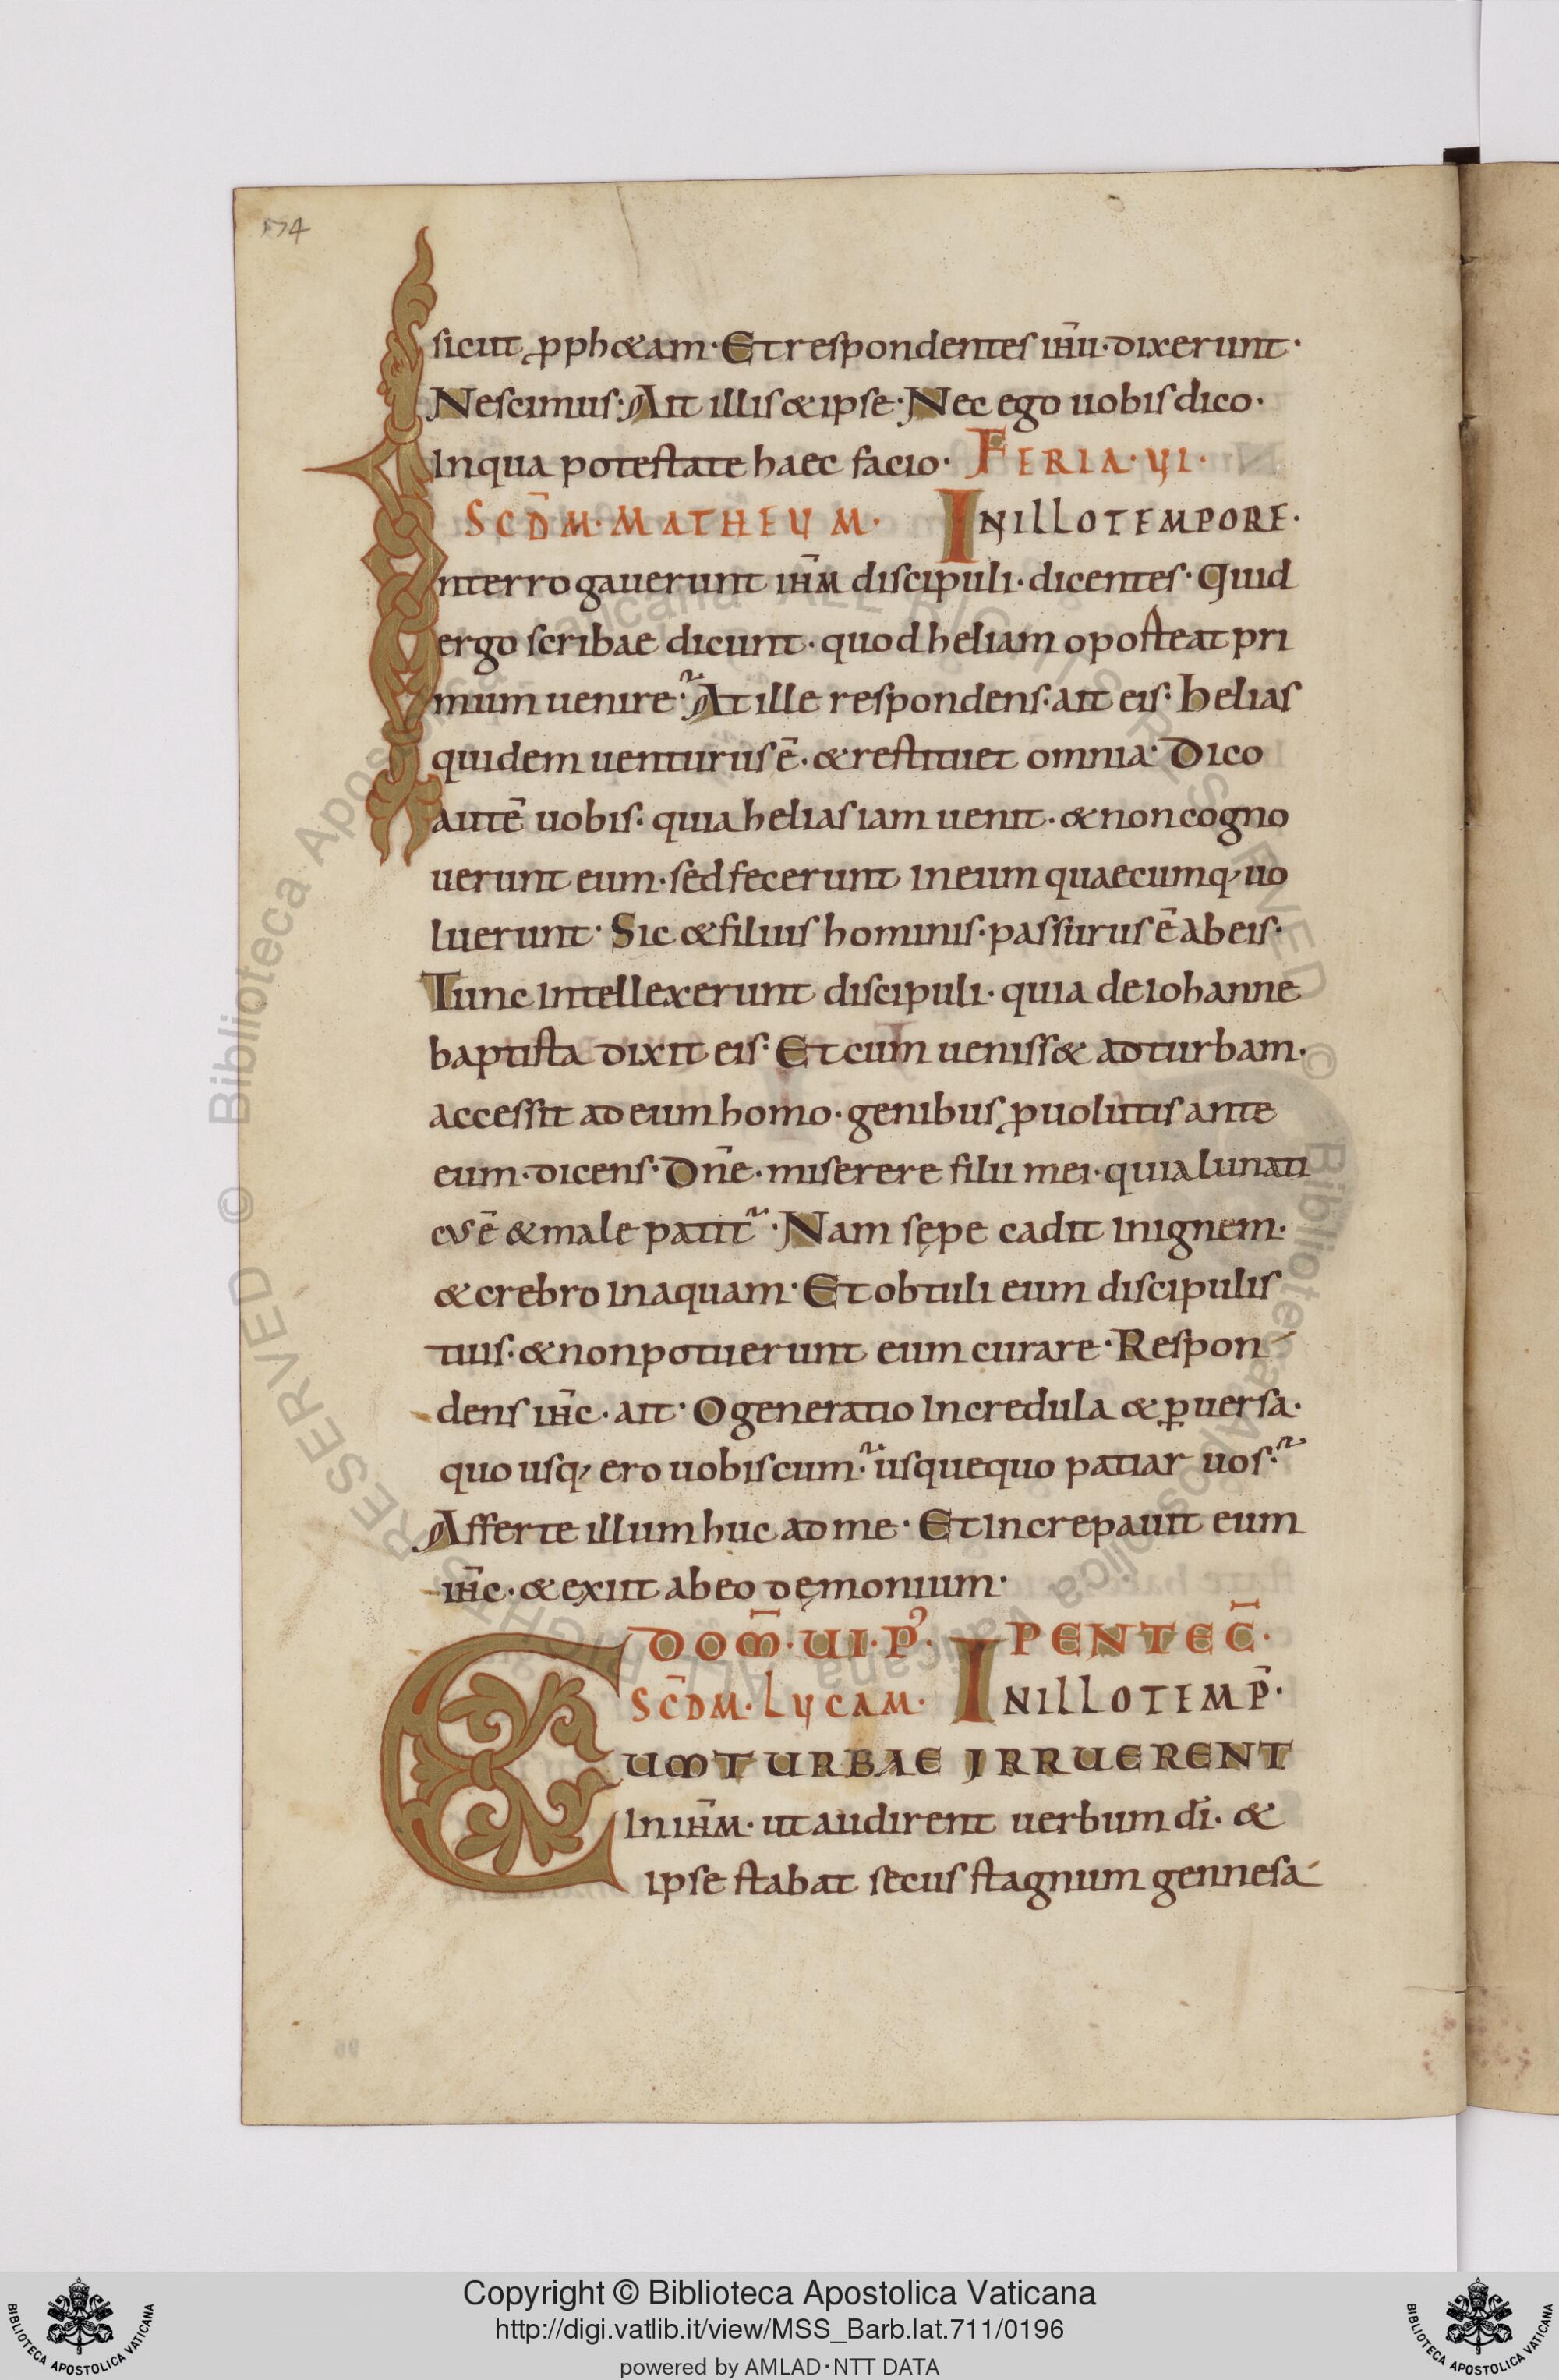 174
sicut ꝓph&am· Et respondentes ih̄u· dixerunt·
Nescimus· Ait illis & ipse· Nec ego uobis dico·
In qua potestate haec facio· FERIA· VI·
SCD̄M· MATHEUM· IN ILLO TEMPORE·
Interrogauerunt ih̄m discipuli· dicentes· Quid
ergo scribae dicunt· quod heliam oposteat pri
mum uenire? At ille respondens· ait eis· helias
quidem uenturus ē· & restituet omnia· Dico
autē uobis· quia helias iam uenit· & non cogno
uerunt eum· sed fecerunt in eum quaecumq; uo
luerunt· Sic & filius hominis· passurus ē ab eis·
Tunc intellexerunt discipuli· quia de iohanne
baptista dixit eis· Et cumueniss& ad turbam·
accessit ad eum homo· genibus ꝓuolutis ante
eum· dicens· Dn̄e· miserere filii mei· quia lunati
cus ē & male patit᷑· Nam sępe cadit in ignem·
& crebro in aquam· Et obtuli eum discipulis
tuis· & non potuerunt eum curare· Respon-
dens ih̄c· ait· O generatio incredula & ꝑuersa·
quo usq; ero uobiscum? usquequo patiar uos?
Afferte illum huc ad me· Et increpauit eum
ih̄c· & exiit ab eo dęmonium·
DOM̄· VI· P᾿· PENTEC̄·
SC̄DM· LUCAM· IN ILLO TEMP̄·
CUM TURBAE IRRUERENT
In ih̄m· ut audirent uerbum dī· &
ipse stabat secus stagnum gennesa-
Copyright © Biblioteca Apostolica Vaticana
http://digi.vatlib.it/view/MSS_Barb.lat.711/0196
powered by AMLAD·NTT DATA
BIBLIOTECA APOSTOLICA VATICANA
BIBLIOTECA APOSTOLICA VATICANA